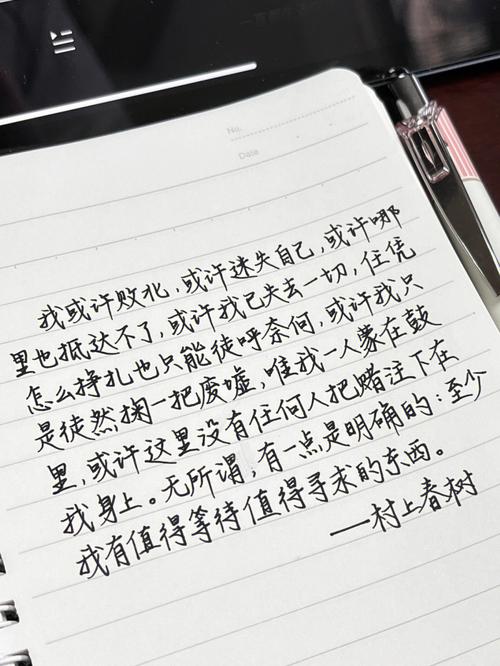 No.
Date
我或许败北,或许迷失自己,或许哪
里也抵达不了,或许我已失去一切,任凭
怎么挣扎也只能徒呼奈何,或许我只
是徒然掬一把废墟,唯我一人蒙在鼓
里,或许这里没有任何人把赌注下在
我身上。无所谓,有一点是明确的:至少
我有值得等待值得寻求的东西。
——村上春树